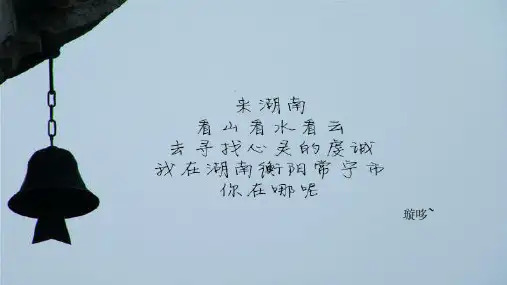 来湖南
看山看水看云
去寻找心灵的虔诚
我在湖南衡阳常宁市
你在哪呢
璇哆~